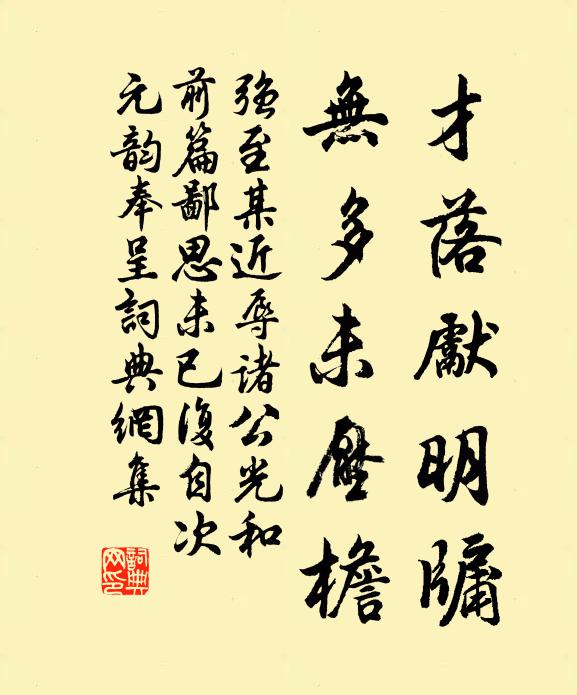 才落獻明牖
無多未壓檐
強至某近辱諸公光和
前篇鄙思未已復自次
元韵奉呈詞典網集
詞典网印